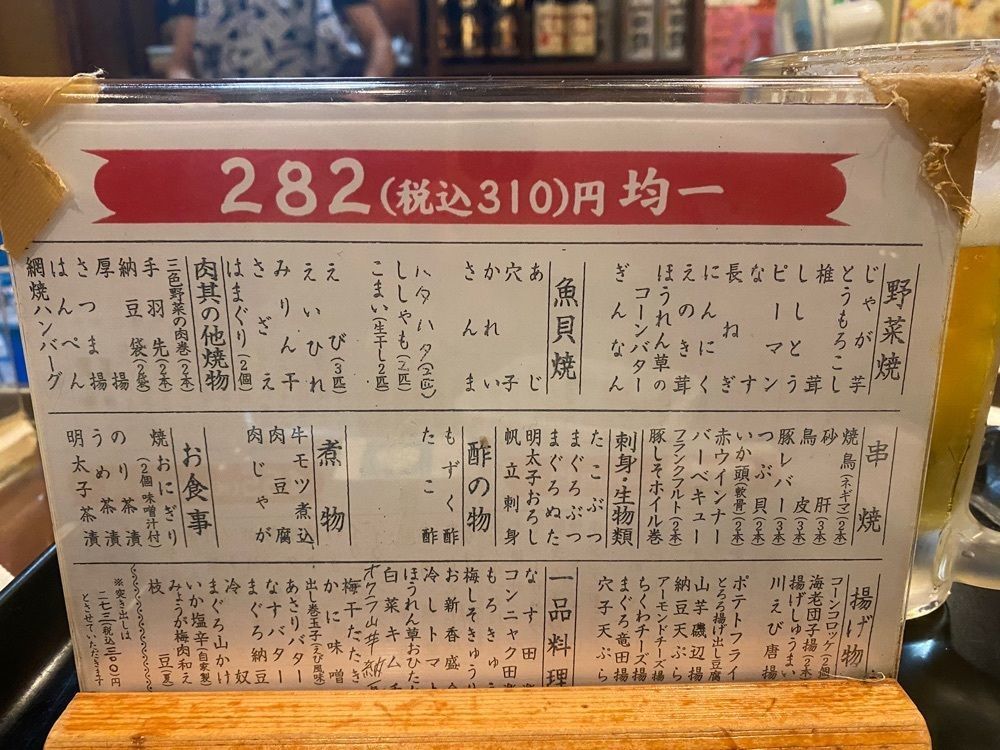 282(税込310)円均一
野菜焼
じゃが芋
とうもろこし
椎茸
ししとう
ピーマン
なす
長ねぎ
にんにく
えのき茸
ほうれん草の
コーンバター
ぎんなん
魚貝焼
あじ
穴子
かれい
さんま
ハタハタ(2匹)
ししゃも(2匹)
こまい(生干し2匹)
えび(3匹)
えいひれ
みりん干
さざえ
はまぐり(2個)
肉其の他焼物
三色野菜の肉巻(2本)
手羽先(2本)
納豆袋(2袋)
厚揚
さつま揚
はんぺん
網焼ハンバーグ
串焼
焼鳥(ネギマ)(2本)
砂肝(3本)
鳥皮(3本)
豚レバー(3本)
つぶ貝(2本)
いか頭(軟骨)(2本)
赤ウインナー
バーベキュー
フランクフルト(2本)
豚しそホイル巻
刺身・生物類
たこぶつ
まぐろぶつ
まぐろぬた
明太子おろし
帆立刺身
酢の物
もずく酢
たこ酢
煮物
牛モツ煮込
肉豆腐
肉じゃが
お食事
焼おにぎり
(2個味噌汁付)
のり茶漬
うめ茶漬
明太子茶漬
揚げ物
コーンコロッケ(2個)
海老団子揚(2本)
揚げしゅうまい
川えび唐揚
ポテトフライ
とろろ揚げ出し豆腐
山芋磯辺揚
納豆天ぷら
アーモンドチーズ揚
ちくわチーズ揚
まぐろ竜田揚
穴子天ぷら
一品料理
なす田楽
コンニャク田楽
もろきゅう
梅しそきゅうり
お新香盛合
冷しトマト
ほうれん草おひたし
白菜キムチ
オクラ山芋納豆
梅干たたき
かに味噌
出し巻玉子(えび風味)
あさりバター
なすバター
まぐろ納豆
まぐろ山かけ
冷奴
いか塩辛(自家製)
みょうが梅肉和え
枝豆(夏)
※突き出しは
二七三(税込三〇〇)円
とさせていただきます